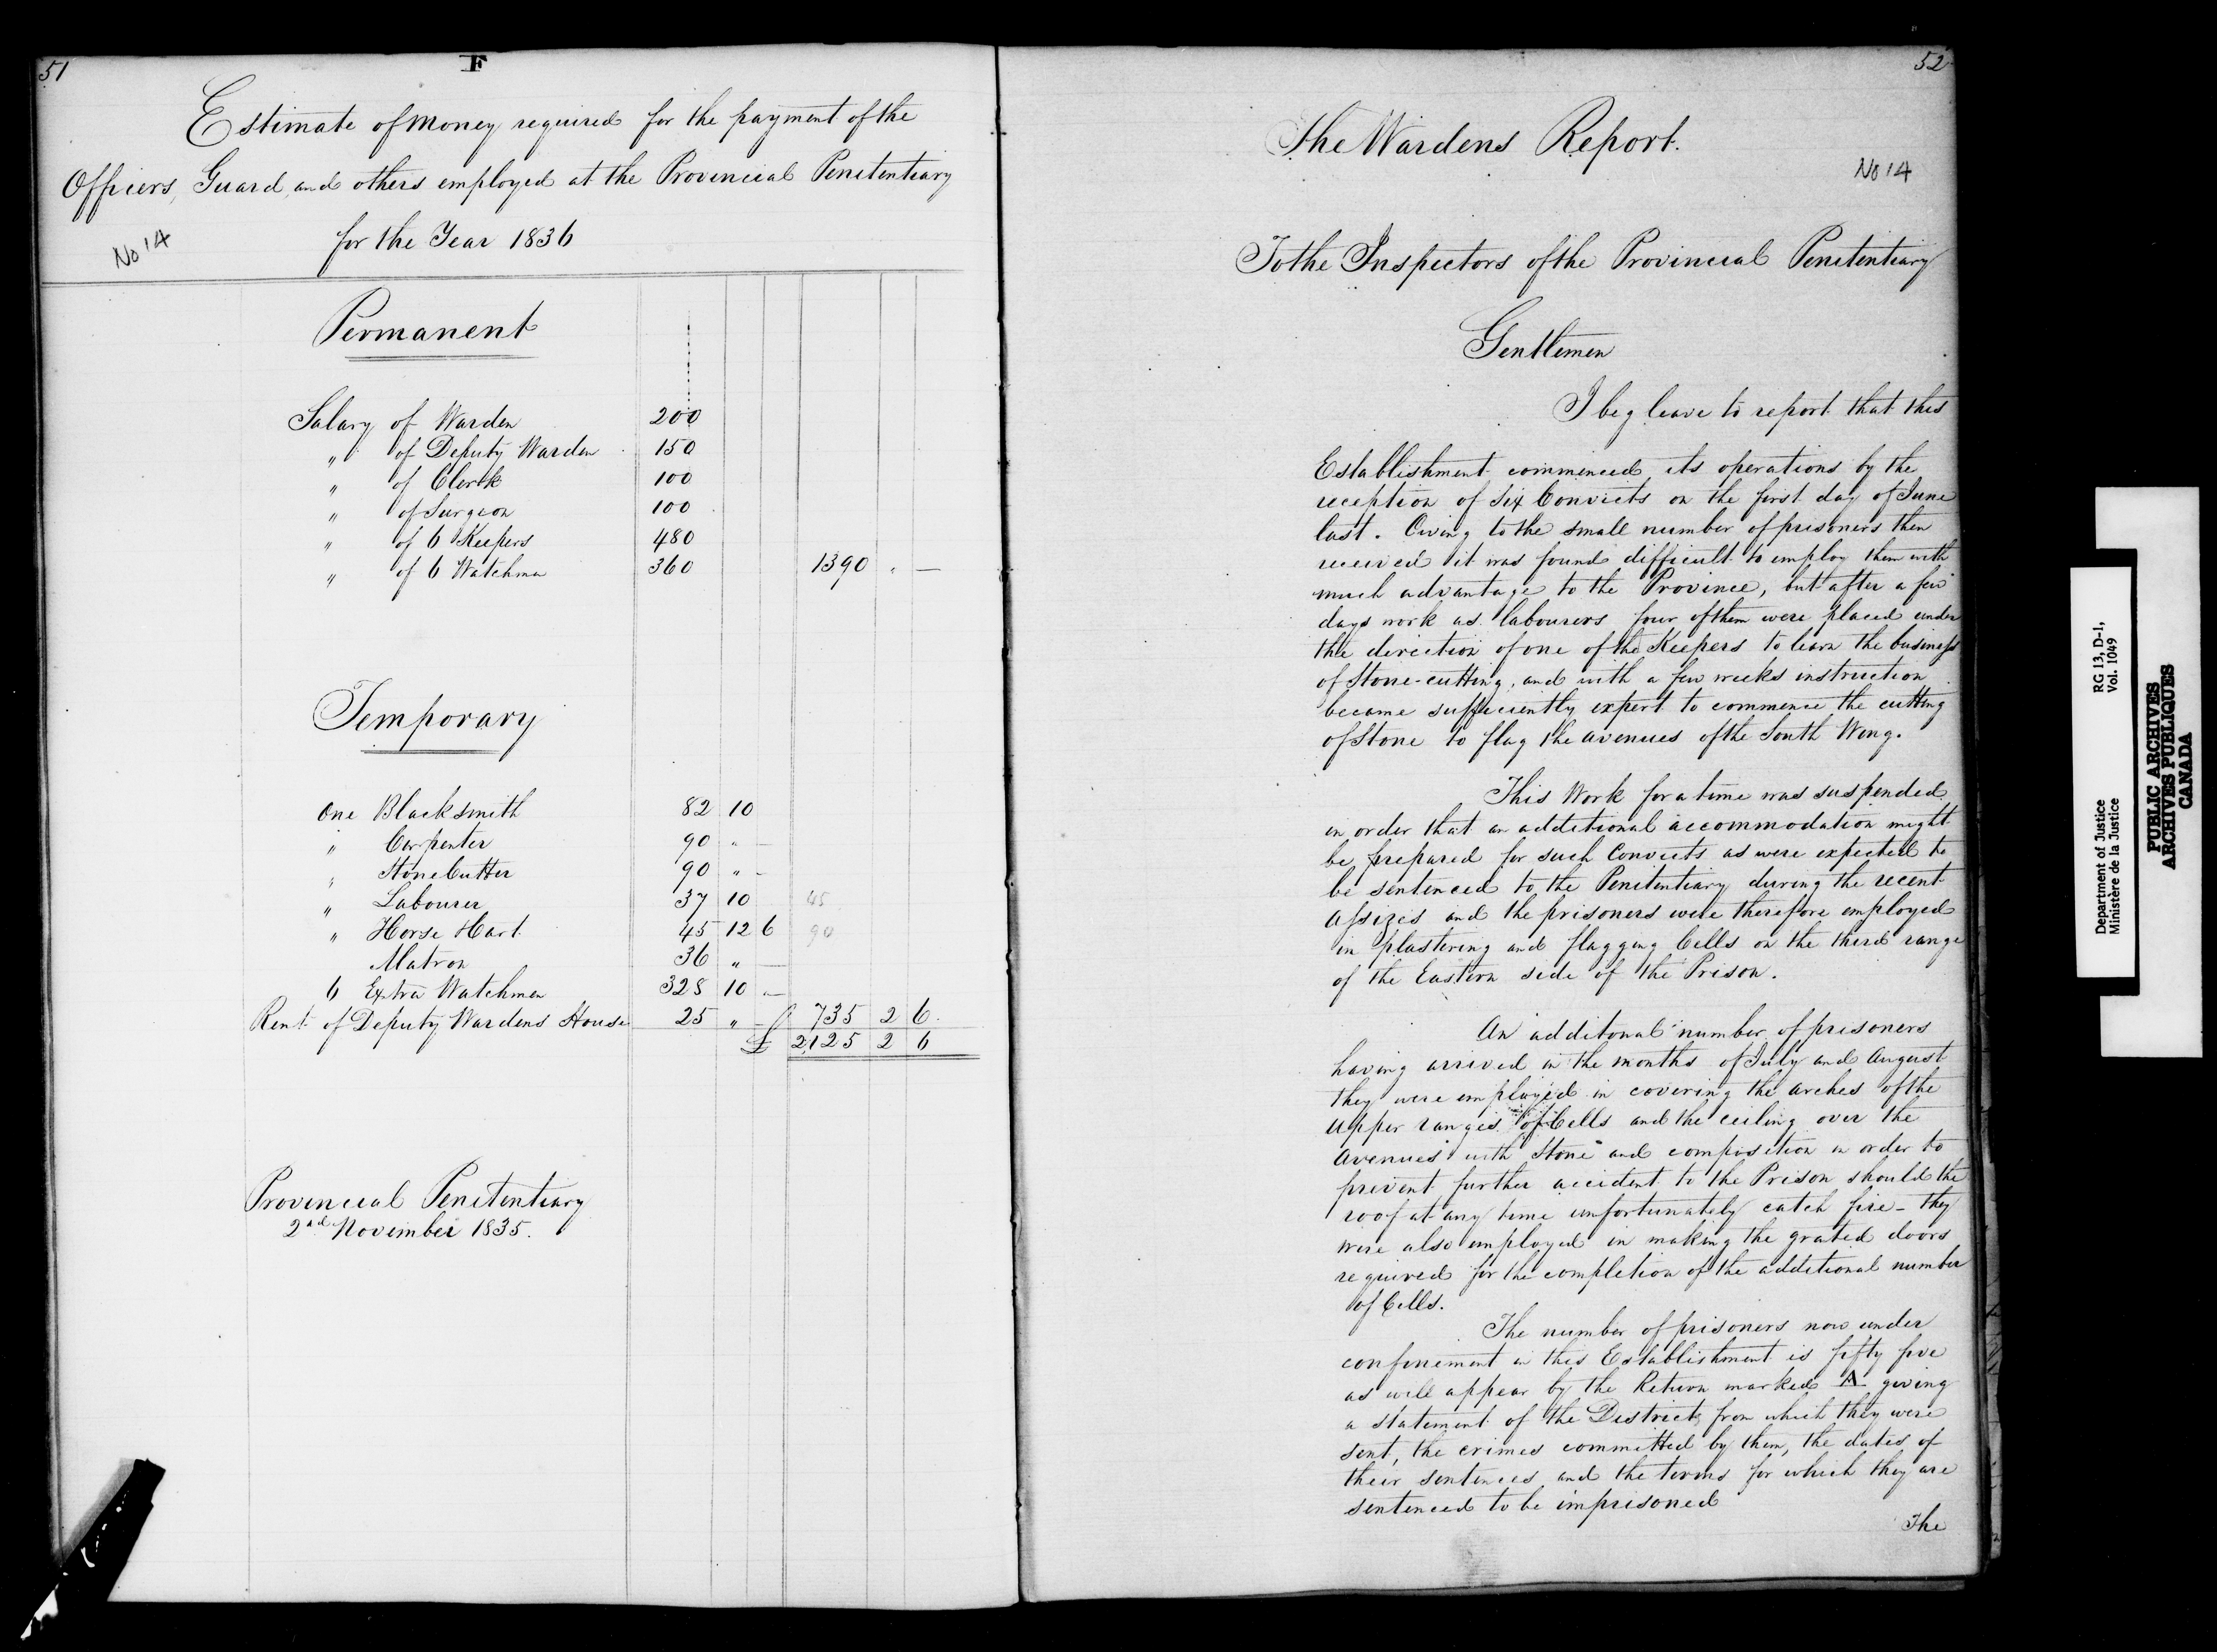 51
F
Estimate of Money required for the payment of the
Officers, Guard, and others employed at the Provincial Penitentiary
for the Year 1836
No 14
Permanent
Salary of Warden 200
" of Deputy Warden 150
" of Clerk 100
" of Surgeon 100
" of 6 Keepers 480
" of 6 Watchmen 360 1390 " —
Temporary
One Blacksmith 82 10
" Carpenter 90 " —
" Stone Cutter 90 " -
" Labourer 37 10 45
" Horse & Cart 45 12 6 90
Matron 36 " —
6 Extra Watchmen 328 10 —
Rent of Deputy Wardens House 25 " — 735 2 6
£ 2125 2 6
Provincial Penitentiary
2nd November 1835.
52
The Wardens Report.
No 14
To the Inspectors of the Provincial Penitentiary
Gentlemen
I beg leave to report that this
Establishment commenced its operations by the
reception of Six Convicts on the first day of June
last. Owing to the small number of prisoners then
received it was found difficult to employ them with
much advantage to the Province, but after a few
days work as labourers four of them were placed under
the direction of one of the Keepers to learn the business
of Stone-cutting, and with a few weeks instruction
became sufficiently expert to commence the cutting
of Stone to flag the avenues of the South Wing.
This Work for a time was suspended
in order that an additional accommodation might
be prepared for such Convicts as were expected to
be sentenced to the Penitentiary during the recent
Assizes and the prisoners were therefore employed
in plastering and flagging Cells on the third range
of the Eastern side of the Prison.
An additonal number of prisoners
having arrived in the months of July and August
they were employed in covering the arches of the
upper ranges of Cells and the ceiling over the
avenues with Stone and composition in order to
prevent further accident to the Prison should the
roof at any time unfortunately catch fire - they
were also employed in making the grated doors
required for the completion of the additional number
of Cells.
The number of prisoners now under
confinement in this Establishment is fifty five
as will appear by the Return marked A giving
a statement of the Districts from which they were
sent, the crimes committed by them, the dates of
their sentences and the terms for which they are
sentenced to be imprisoned
The
Department of Justice RG 13, D-1,
Ministère de la Justice Vol. 1049
PUBLIC ARCHIVES
ARCHIVES PUBLIQUES
CANADA